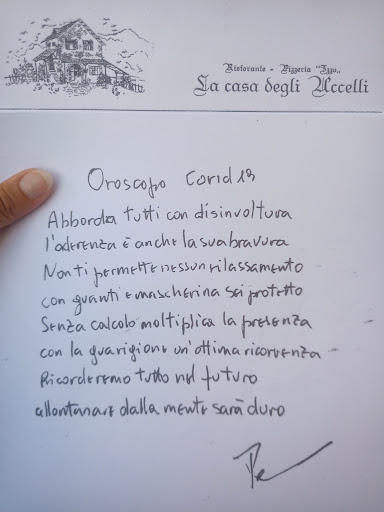 Ristorante - Pizzeria "Izzo„
La casa degli Uccelli
Oroscopo Covid 19
Abborda tutti con disinvoltura
l'aderenza è anche la sua bravura
Non ti permette nessun rilassamento
con guanti e mascherina sei protetto
Senza calcolo moltiplica la presenza
con la guarigione un'ottima ricorrenza
Ricorderemo tutto nel futuro
allontanare dalla mente sarà duro